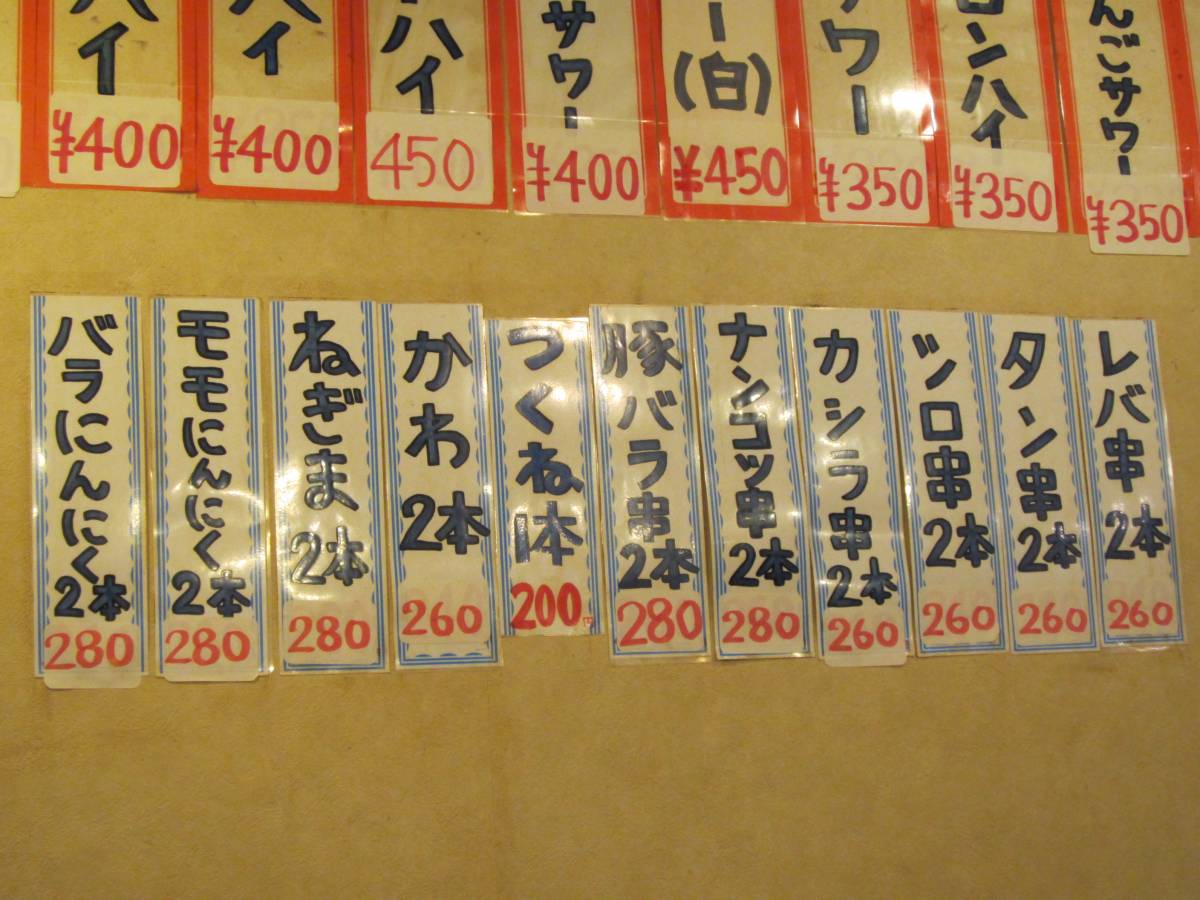 ハイ
¥400
ハイ
¥400
ハイ
450
サワー
¥400
ー(白)
¥450
サワー
¥350
ロンハイ
¥350
んごサワー
¥350
バラにんにく2本
280
モモにんにく2本
280
ねぎま2本
280
かわ2本
260
つくね1本
200円
豚バラ串2本
280
ナンコツ串2本
280
カシラ串2本
260
シロ串2本
260
タン串2本
260
レバ串2本
260